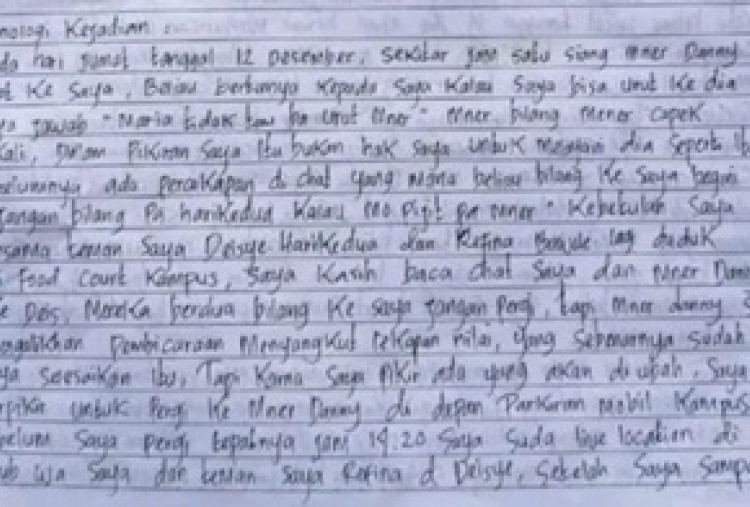 nologi Kejadian
da hari jumat tanggal 12 Desember, sekitar jam satu siang Mner Danny
at Ke saya, Beliau bertanya kepada saya kalau saya bisa urut ke dia
ya jawab "Maria tidak tau ba urut Mner" Mner bilang Mener capek
kali, Dalam Pikiran saya itu bukan hak saya untuk melayani dia seperti
belumnya ada percakapan di chat yang mana beliau bilang ke saya begini
Jangan bilang Pa harikedua kalau mo pijit pa mner" Kebetulan saya
sama teman saya Deisye Harikedua dan Refina lag duduk
Food Court Kampus, saya kasih baca chat saya dan Mner Dann
e Deis, Mereka berdua bilang ke saya jangan Pergi, tapi Mner danny
ngalihkan Pembicaraan Menyangkut rekapan nilai, yang sebenarnya sudah
ya selesaikan itu, Tapi Karna saya Pikir ada yang akan di ubah, saya
rpikir untuk Pergi ke Mner Danny di depan Parkiran mobil Kampus
belum saya pergi tepatnya jam 14:20 saya suda live location di
ub WA saya dan teman saya Refina d Deisye, Setelah saya sampa